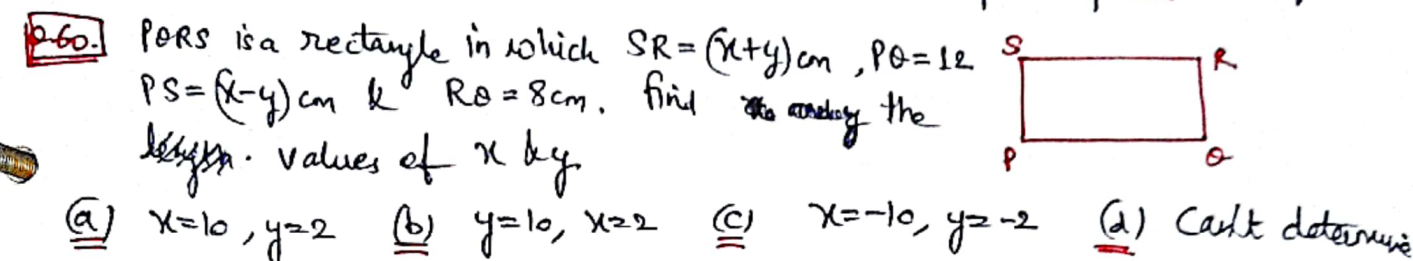 Q.60. PQRS is a rectangle in which SR = (x+y) cm, PQ = 12
PS = (x-y) cm & RQ = 8cm. find the
values of x & y.
S R
P Q
(a) x=10, y=2 (b) y=10, x=2 (c) x=-10, y=-2 (d) Can't determine